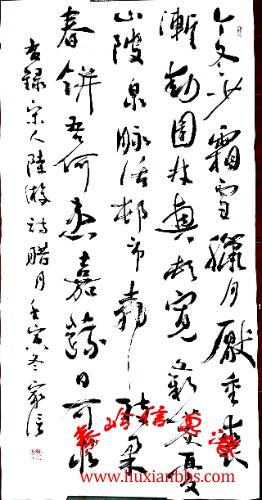 今冬少霜雪臘月厭重裘
漸動園林興頓寬薪炭憂
山陂泉脈活邨市柳枝柔
春餅吾何患嘉蔬日可求
右錄宋人陸游詩臘月壬寅冬家信
www.huxianbbs.com